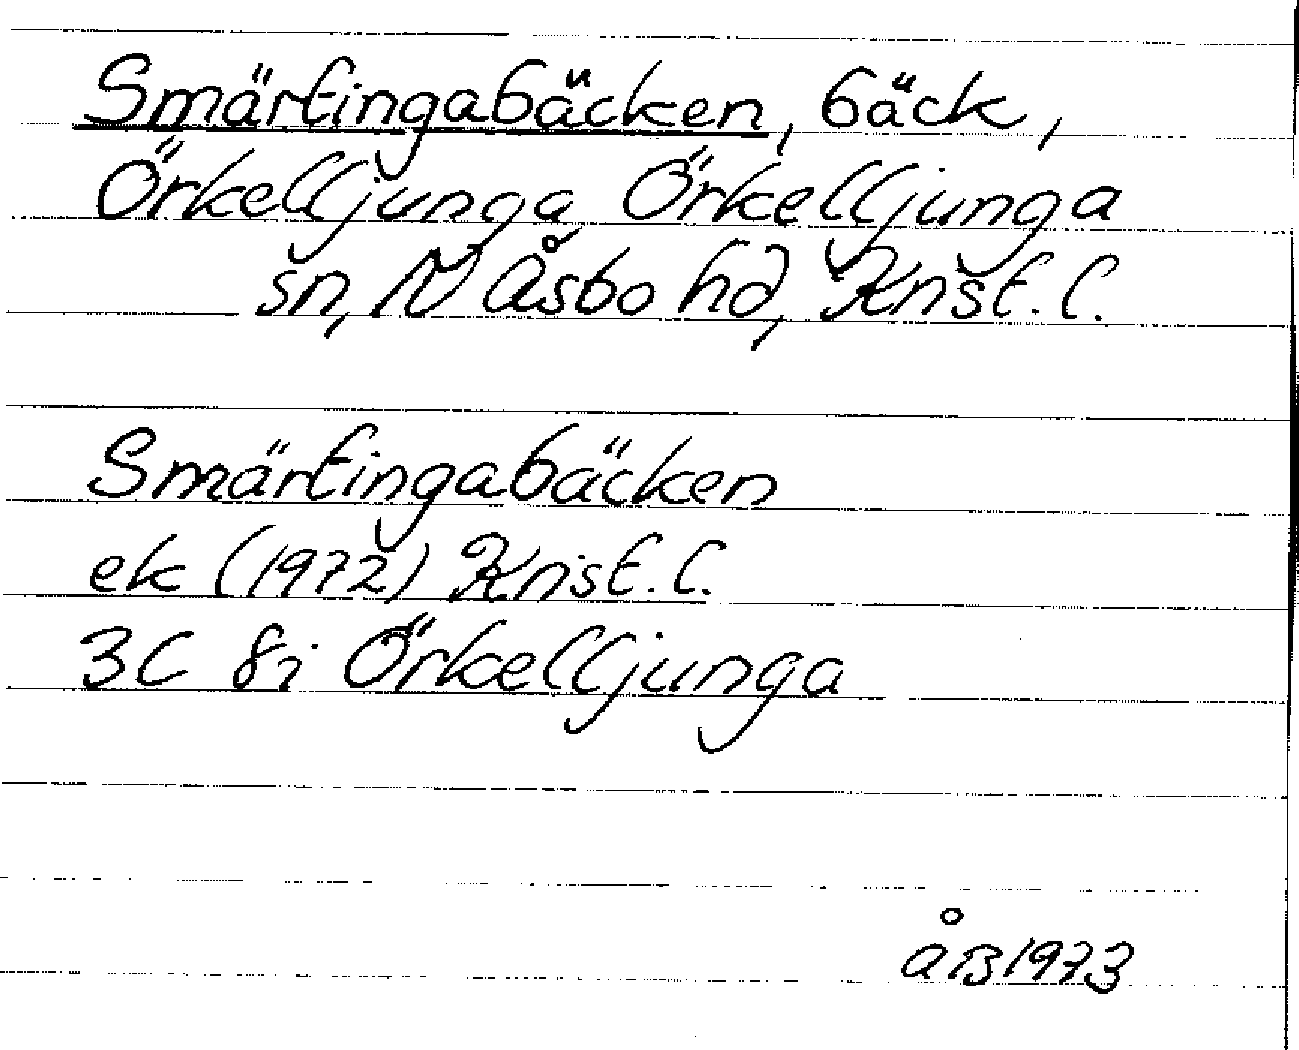 Smärtingabäcken, bäck,
Örkelljunga, Örkelljunga
sn, N Åsbo hd, Krist. l.
Smärtingabäcken
ek (1972) Krist. l.
3C 8i Örkelljunga
ÅB 1973